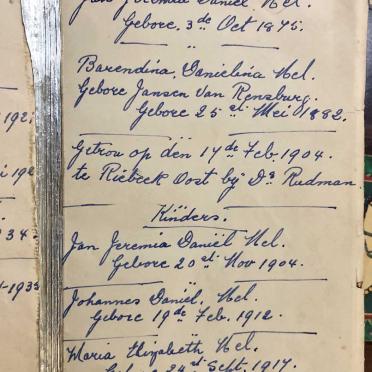 Jan Jeremia Daniel Nel.
Gebore. 3de Oct 1875.
Barendina, Danielina Nel.
Gebore Jansen van Rensburg.
Gebore 25st Mei 1882.
Getrou op den 17de Feb. 1904.
te Riebeek Oost bij Ds Rudman.
Kinders.
Jan Jeremia Daniël Nel.
Gebore 20st Nov 1904.
Johannes Daniel, Nel.
Gebore 19de Feb. 1912.
Maria Elizabeth Nel.
Gebore 24st Sept. 1917.